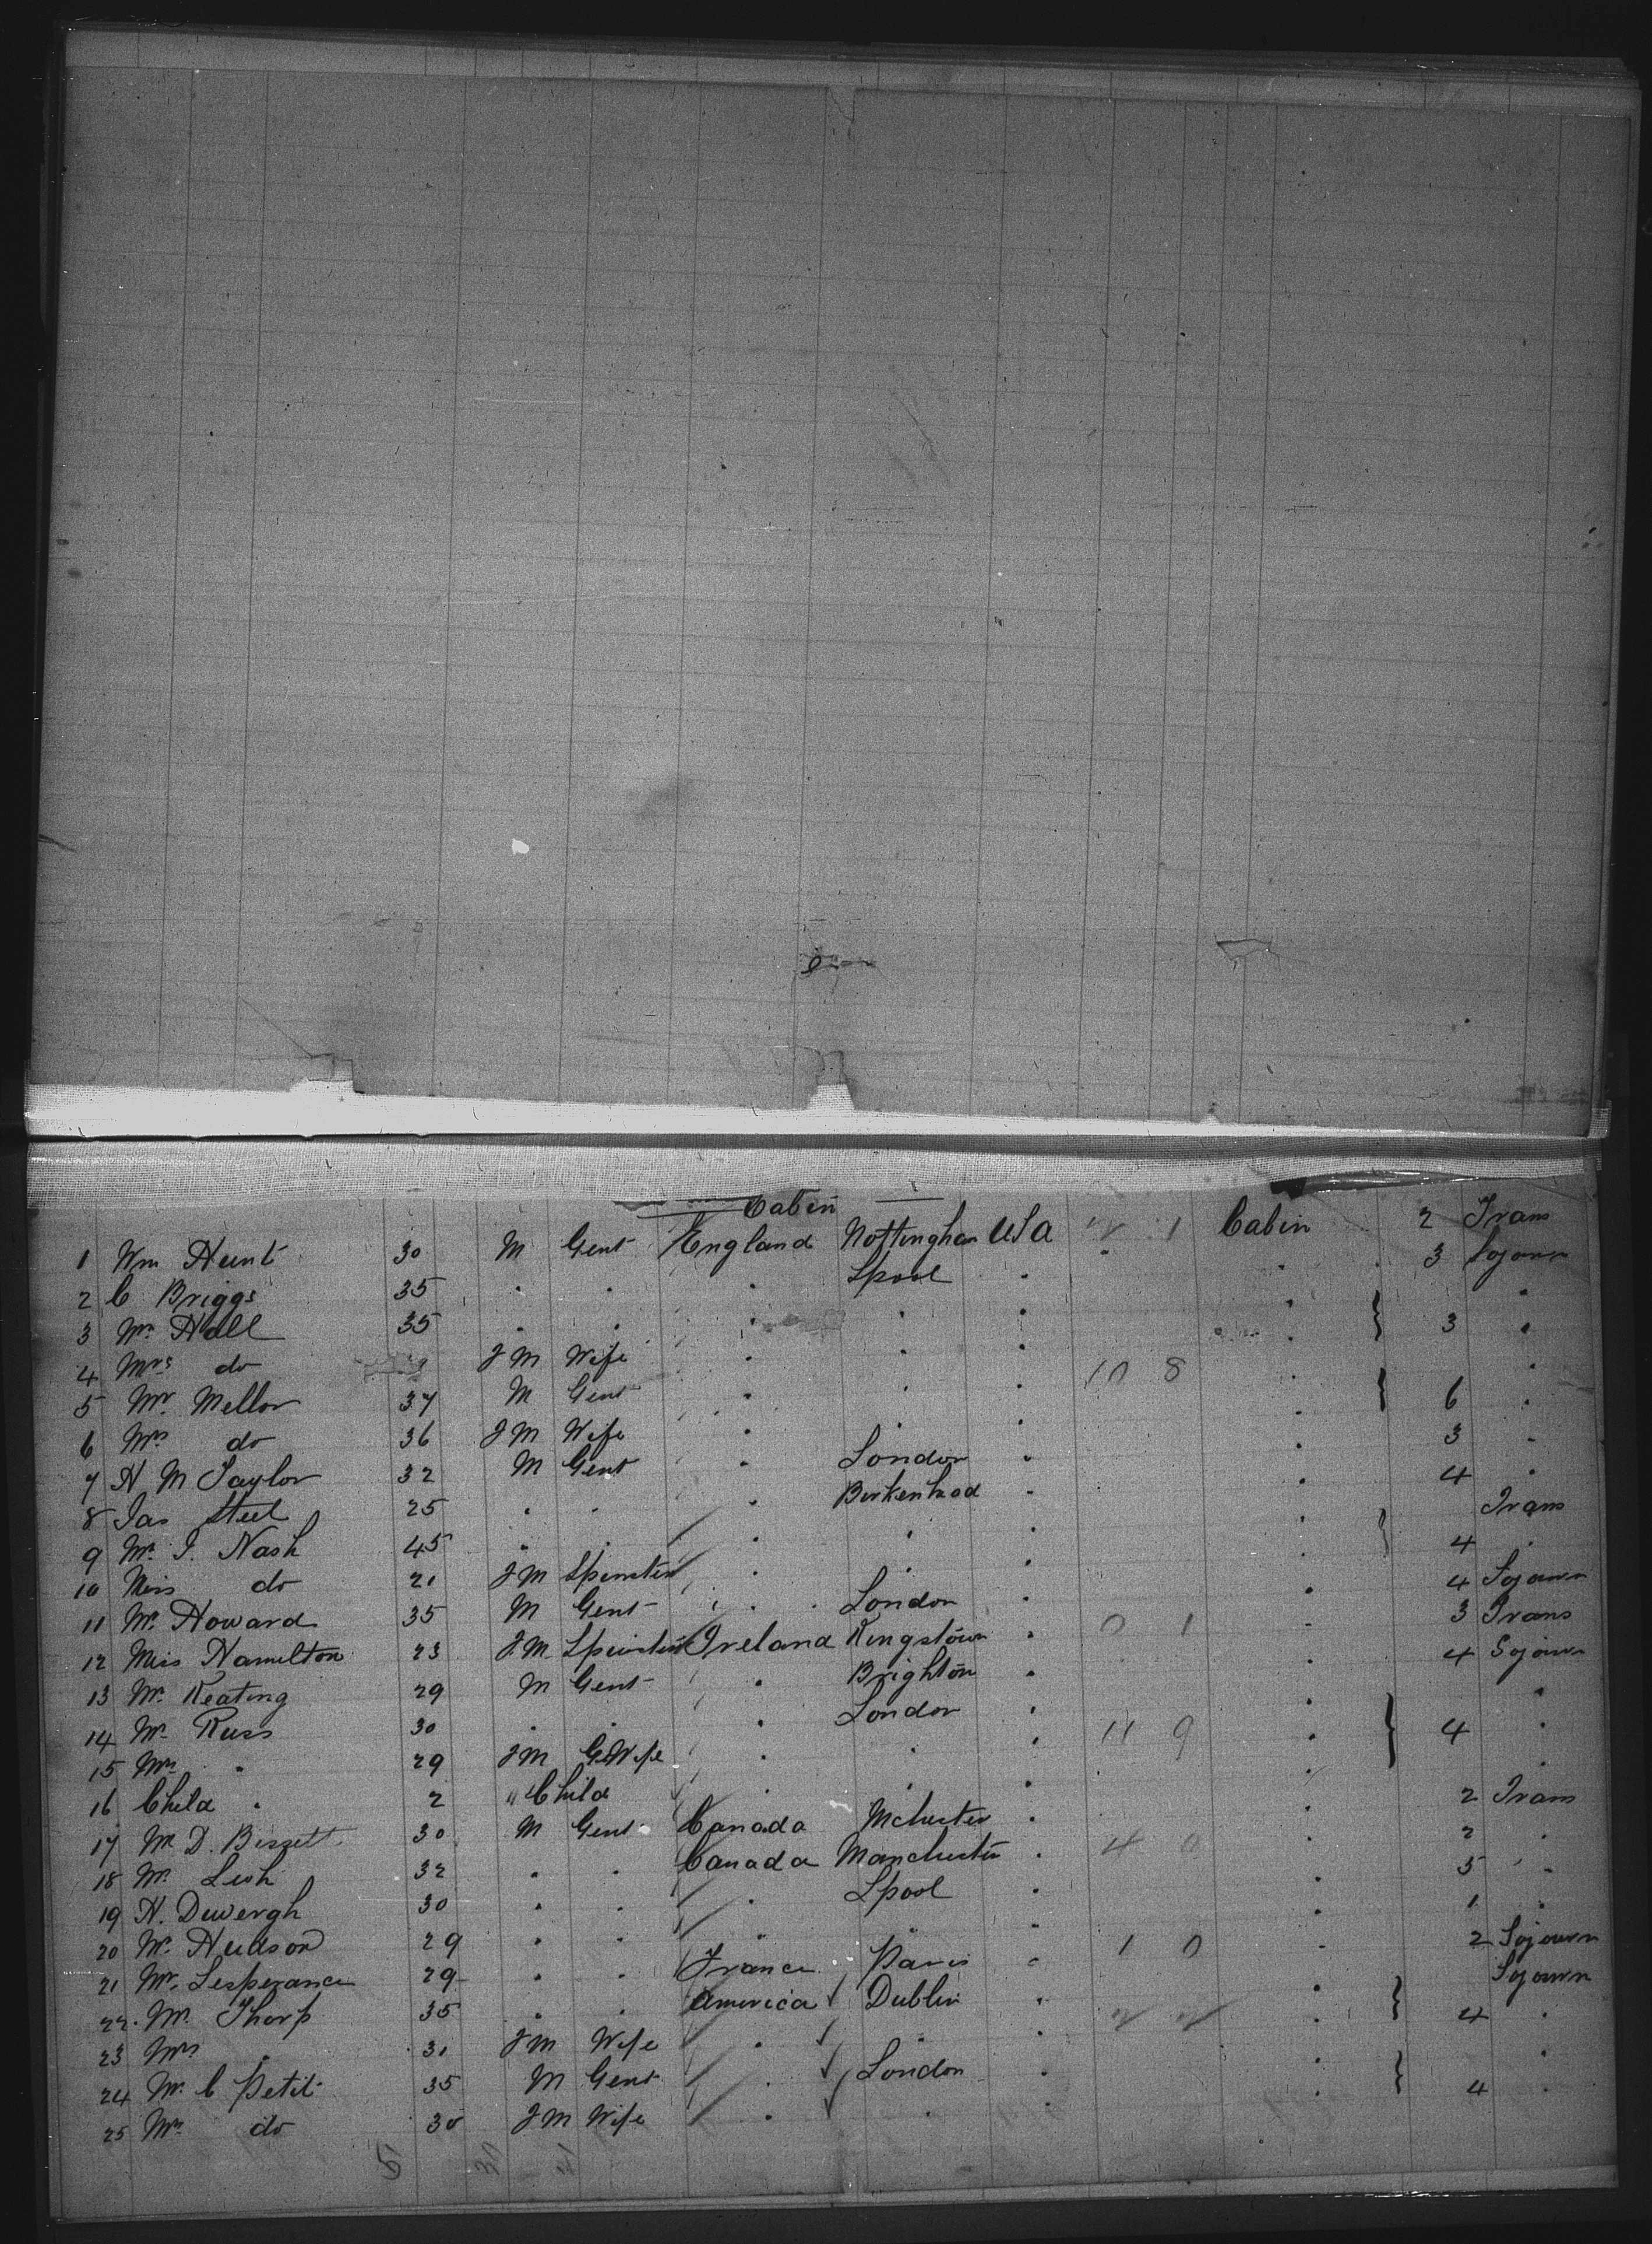 Cabin
1 Wm Hunt 30 M Gent England Nottingham USA 1 Cabin 2 Trans
2 C Briggs 35 " " " Lpool " " " 3 Sojourn
3 Mr Hall 35 " " " " " " } 3 "
4 Mrs do F M Wife " " " " "
5 Mr Mellor 37 M Gent " " " 10 8 " } 6 "
6 Mrs do 36 F M Wife " " " " "
7 H M Taylor 32 M Gent " London " " 3 "
8 Jas Steel 25 " " " Birkenhead " " 4 "
9 Mr J. Nash 45 " " " " " " } 4 Trans
10 Miss do 21 F M Spinster " " " " "
11 Mr Howard 35 M Gent " London " " 4 Sojourn
12 Miss Hamilton 23 F M Spinster Ireland Kingstown " 0 1 " 3 Trans
13 Mr Keating 29 M Gent " Brighton " " 4 Sojourn
14 Mr Russ 30 " " " London " " } 4 "
15 Mrs " 29 F M Wife " " " 11 9 " "
16 Child " 2 " Child " " " "
17 Mr D. Bissett 30 M Gent Canada Mchester " " 2 Trans
18 Mr Leish 32 " " Canada Manchester " 4 0 " 2 "
19 H. Duvergh 30 " " " Lpool " " 5 "
20 Mr Hudson 29 " " " " " " 1 "
21 Mr Lesperance 29 " " France Paris " 1 0 " 2 Sojourn
22 Mr Thorp 35 " " America Dublin " " } 4 Sojourn
23 Mrs " 31 F M Wife " " " " "
24 Mr C Petit 35 M Gent " London " " } 4 "
25 Mrs do 30 F M Wife " " " "